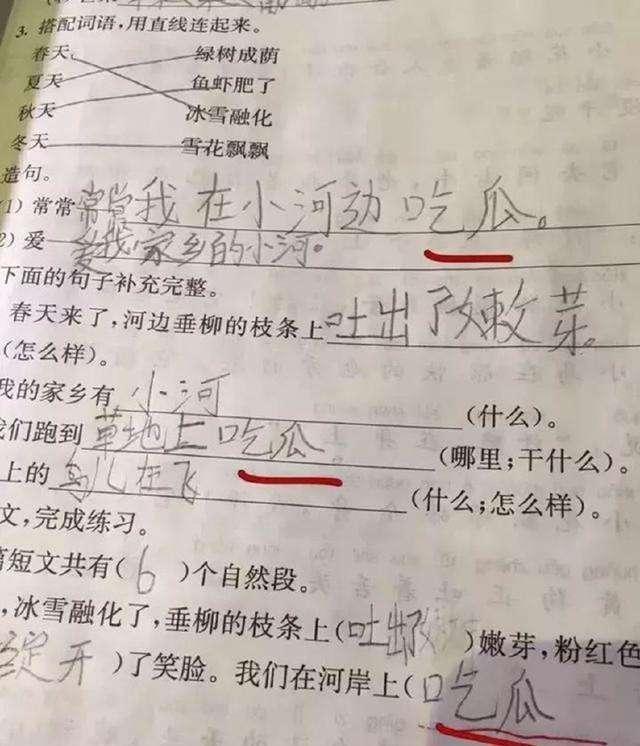 3. 搭配词语，用直线连起来。
春天 绿树成荫
夏天 鱼虾肥了
秋天 冰雪融化
冬天 雪花飘飘
造句。
1）常常 常常我在小河边吃瓜。
2）爱 爱我家乡的小河。
下面的句子补充完整。
春天来了，河边垂柳的枝条上吐出了嫩芽。
（怎么样）。
我的家乡有 小河 （什么）。
我们跑到 草地上吃瓜 （哪里；干什么）。
上的 鸟儿在飞 （什么；怎么样）。
文，完成练习。
篇短文共有（6）个自然段。
，冰雪融化了，垂柳的枝条上（吐出）嫩芽，粉红色
绽开）了笑脸。我们在河岸上（吃瓜